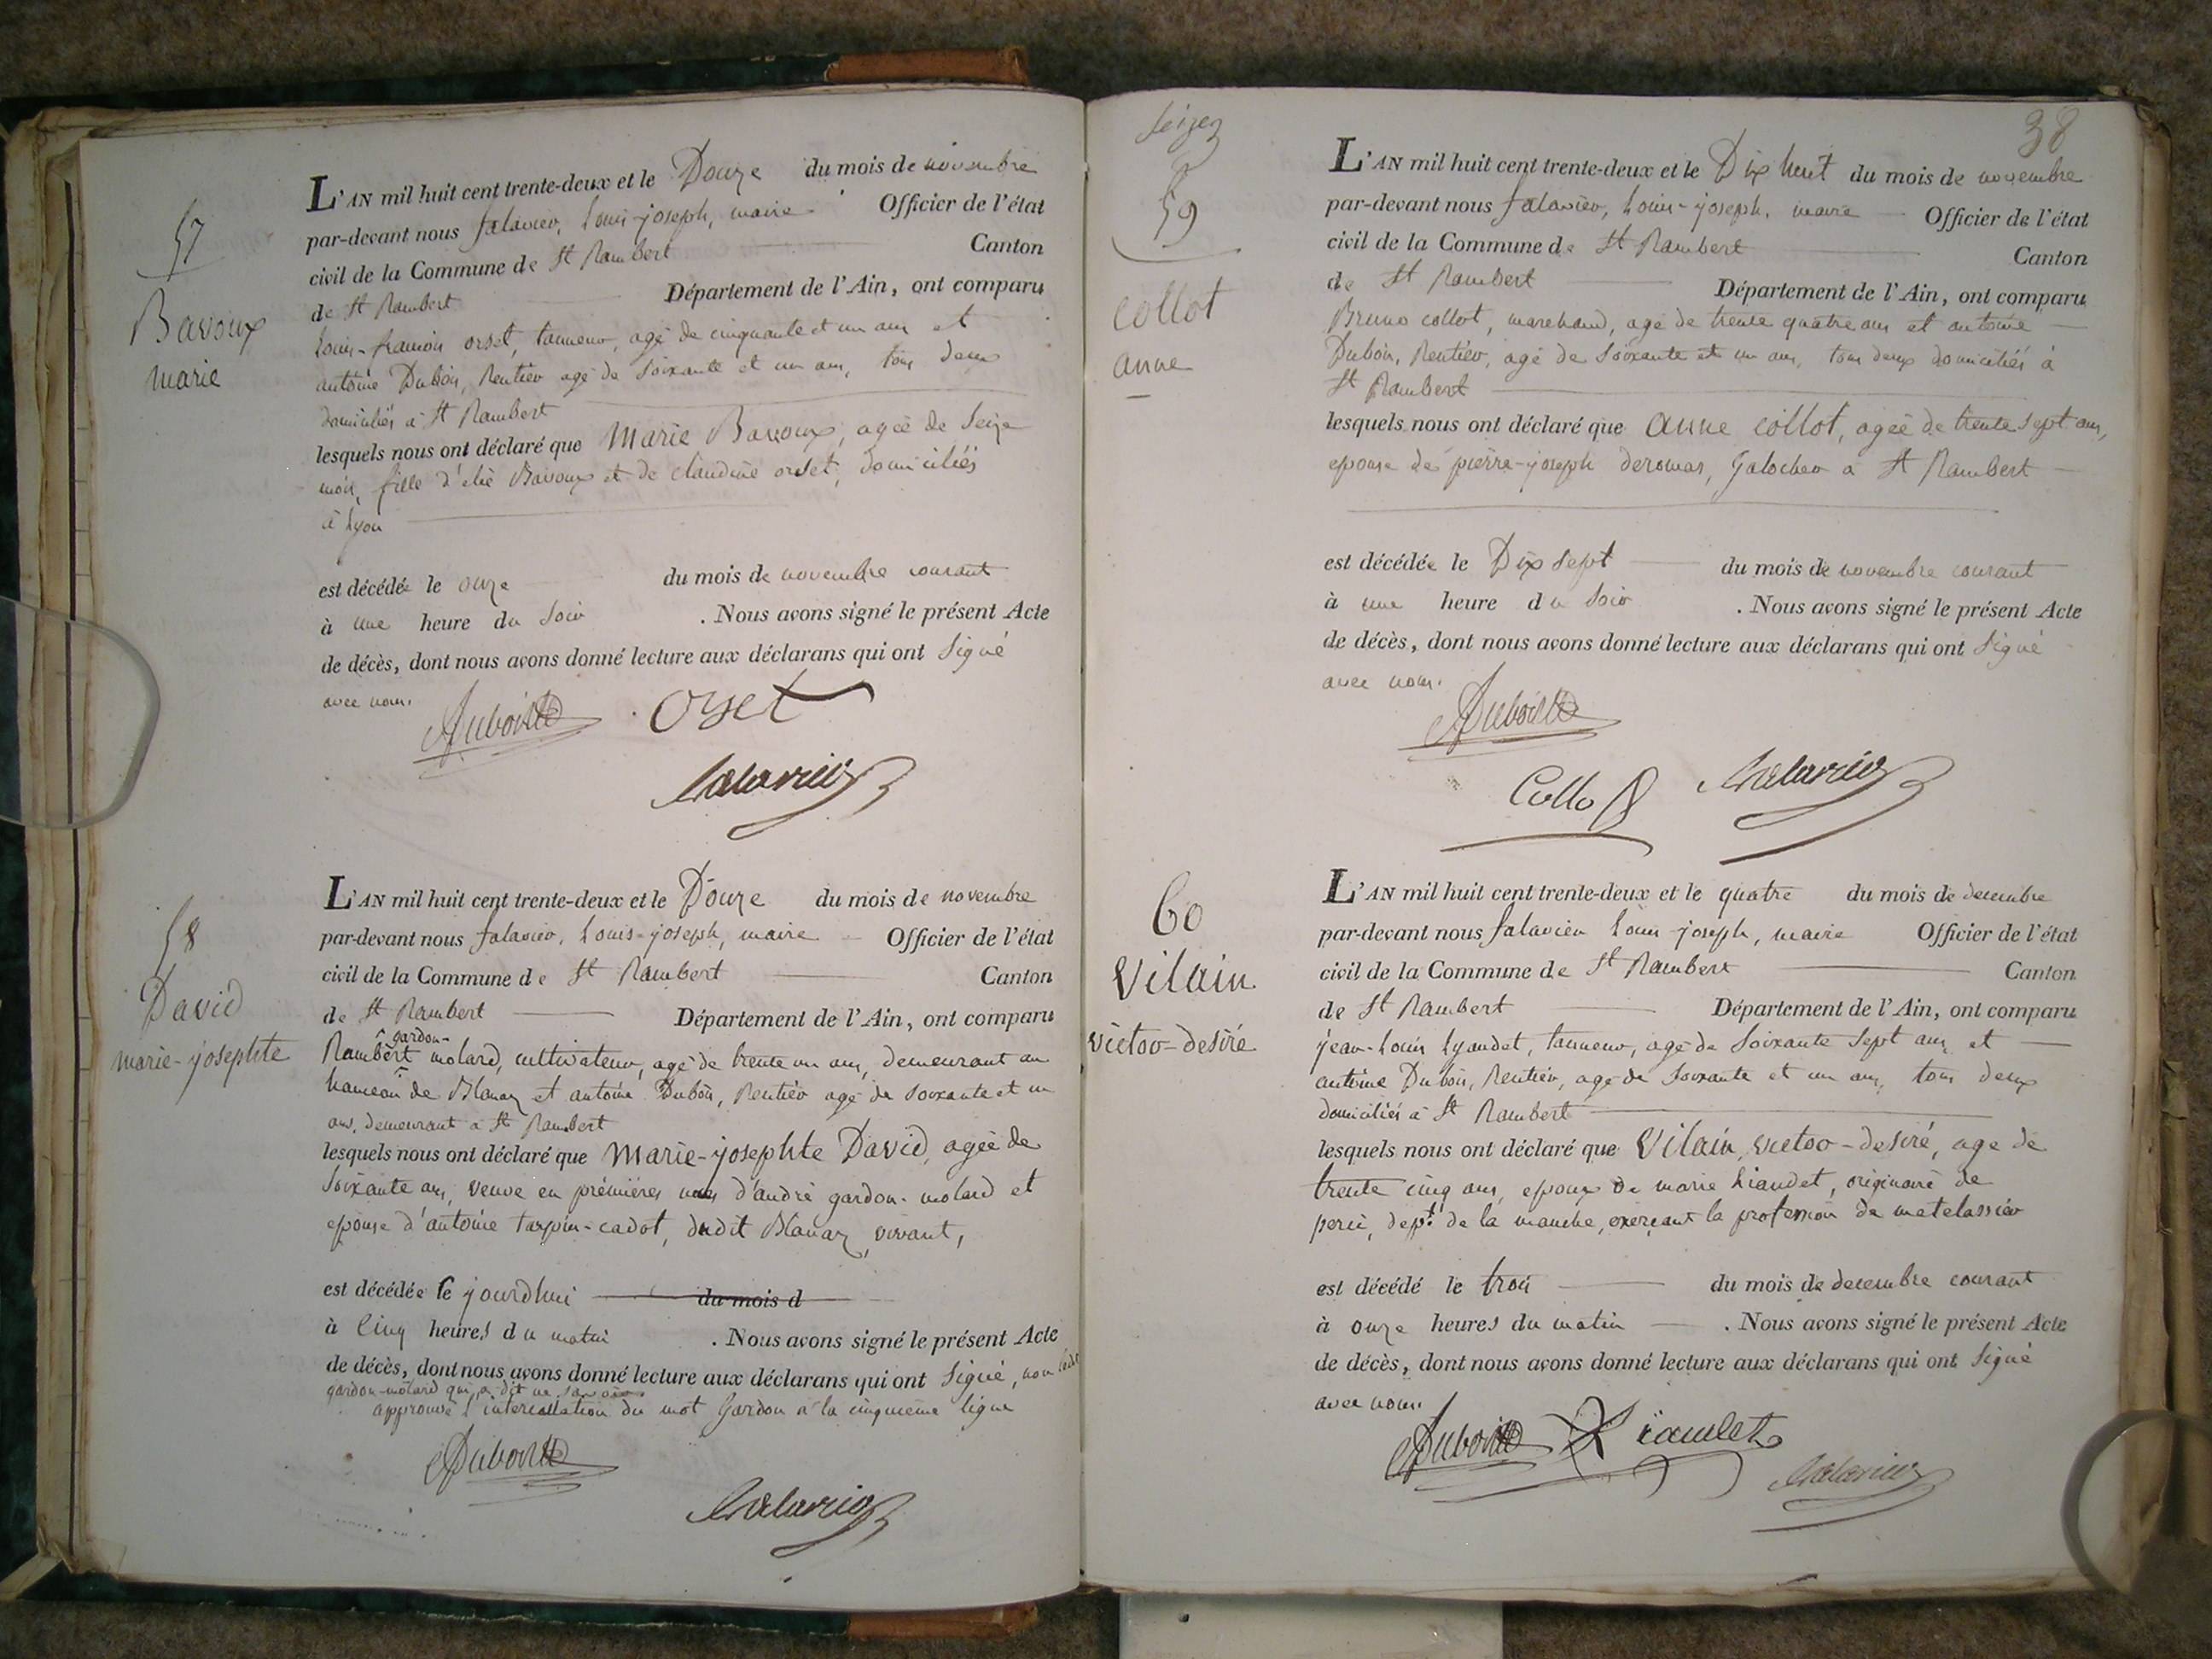 57
Bavoux
marie
L'AN mil huit cent trente-deux et le Douze du mois de novembre
par-devant nous falavier, Louis-joseph, maire Officier de l'état
civil de la Commune de St Rambert Canton
de St Rambert Département de l'Ain, ont comparu
Louis-francois orset, tanneur, agé de cinquante et un ans et
antoine Dubois, Rentier agé de soixante et un ans, tous deux
domiciliés à St Rambert
lesquels nous ont déclaré que Marie Bavoux, agée de seize
mois, fille d'elie Bavoux et de claudine orset, domiciliés
à Lyon
est décédée le onze du mois de novembre courant
à une heure du soir . Nous avons signé le présent Acte
de décès, dont nous avons donné lecture aux déclarans qui ont signé
avec nous.
ADubois Orset
falavier
58
David
marie-josephte
L'AN mil huit cent trente-deux et le Douze du mois de novembre
par-devant nous falavier, Louis-joseph, maire Officier de l'état
civil de la Commune de St Rambert Canton
de St Rambert Département de l'Ain, ont comparu
gardon-
Rambert molard, cultivateur, agé de trente un ans, demeurant au
hameau de Blanaz et antoine Dubois, Rentier agé de soixante et un
ans, demeurant à St Rambert
lesquels nous ont déclaré que Marie-josephte David, agée de
soixante ans, veuve en prémières noces d'andré gardon-molard et
epouse d'antoine tarpin-cadot, dudit Blanaz, vivant,
est décédée le jourd'hui du mois d
à cinq heures du matin . Nous avons signé le présent Acte
de décès, dont nous avons donné lecture aux déclarans qui ont signé, non ledit
gardon-molard qui a dit ne savoir.
approuvé l'intercallation du mot Gardon à la cinquième ligne
ADubois
falavier
seizez
59
collot
anne
38
L'AN mil huit cent trente-deux et le Dix huit du mois de novembre
par-devant nous falavier, Louis-joseph, maire Officier de l'état
civil de la Commune de St Rambert Canton
de St Rambert Département de l'Ain, ont comparu
Bruno collot, marchand, agé de trente quatre ans et antoine
Dubois, Rentier, agé de soixante et un ans, tous deux domiciliés à
St Rambert
lesquels nous ont déclaré que anne collot, agée de trente sept ans,
epouse de pierre-joseph deromas, Galocher à St Rambert
est décédée le Dix sept du mois de novembre courant
à une heure du soir . Nous avons signé le présent Acte
de décès, dont nous avons donné lecture aux déclarans qui ont signé
avec nous.
ADubois
Collot falavier
60
Vilain
victor-desiré
L'AN mil huit cent trente-deux et le quatre du mois de decembre
par-devant nous falavier Louis-joseph, maire Officier de l'état
civil de la Commune de St Rambert Canton
de St Rambert Département de l'Ain, ont comparu
jean-Louis Lyaudet, tanneur, agé de soixante sept ans et
antoine Dubois, Rentier, agé de soixante et un ans, tous deux
domiciliés à St Rambert
lesquels nous ont déclaré que Vilain, victor-desiré, age de
trente cinq ans, epoux de marie Liaudet, originaire de
perci, dept. de la manche, exerçant la profession de matelassier
est décédé le trois du mois de decembre courant
à onze heures du matin . Nous avons signé le présent Acte
de décès, dont nous avons donné lecture aux déclarans qui ont signé
avec nous.
ADubois Liaudet
falavier